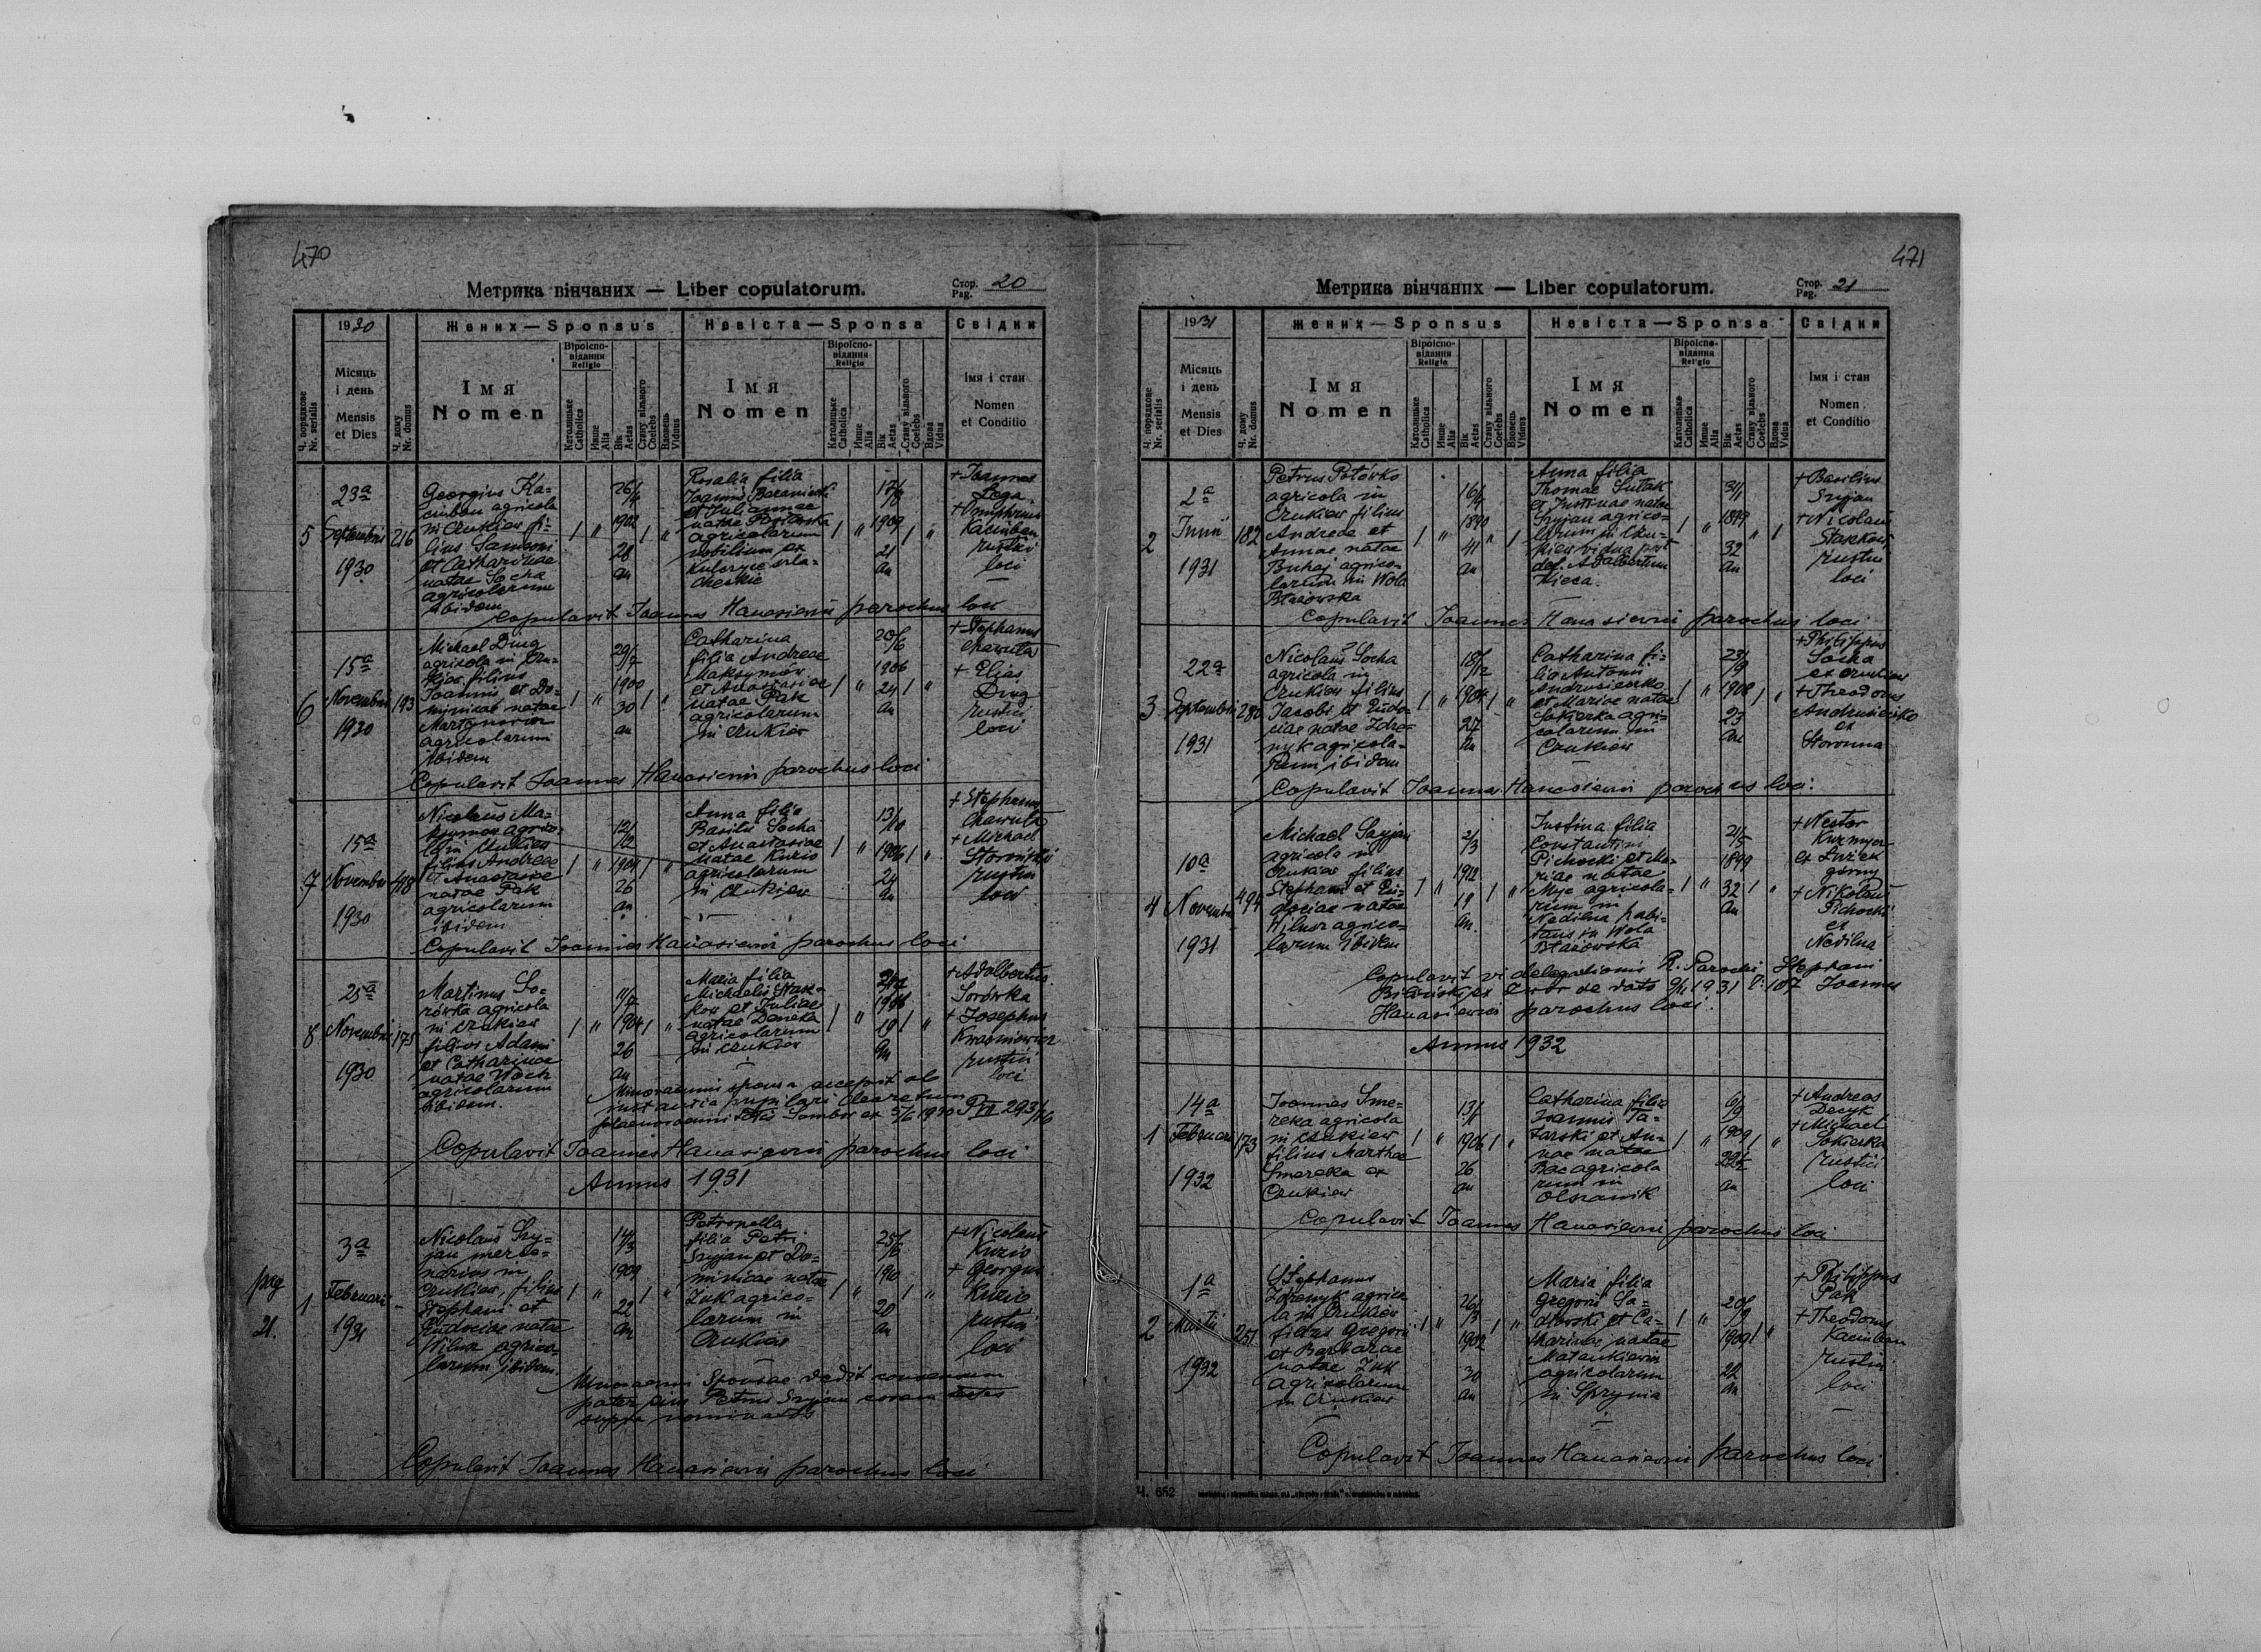 470
Метрика вінчаних — Liber copulatorum.
Стор. Pag. 20
1930
Жених — Sponsus
Невіста — Sponsa
Свідки
Ч. порядкове Nr. serialis
Місяць і день Mensis et Dies
Ч. дому Nr. domus
Імя Nomen
Віроісповідання Religio
Католицьке Catholica
Инше Alia
Вік Aetas
Стану вільного Coelebs
Вдовець Viduus
Імя Nomen
Віроісповідання Religio
Католицьке Catholica
Инше Alia
Вік Aetas
Стану вільного Coelebs
Вдова Vidua
Імя і стан Nomen et Conditio
5
23a
Septembris
1930
216
Georgius Ka-
cinban agricola
in Czukiew fi-
lius Samsoni
et Catharinae
natae Socha
agricolarum
ibidem
26/4
1902
28
an
Rosalia filia
Joannis
et Juliannae
natae
agricolarum
nobilium ex
17/8
1909
21
an
+ Joannes
+ Onuphrius
Kacinban
rustici
loci
Copulavit Joannes Hanasiewicz parochus loci
6
15a
Novembris
1930
193
Michael Dmg
agricola in Czu-
kiew filius
Joannis et Do-
minicae natae
Martynowicz
agricolarum
ibidem
29/7
1900
30
an
Catharina
filia Andreae
Maksymów
et Anastasiae
natae Pak
agricolarum
in Czukiew
20/6
1906
24
an
+ Stephanus
Chawula
+ Elias
Dmg
rustici
loci
Copulavit Joannes Hanasiewicz parochus loci
7
15a
Novembris
1930
498
Nicolaus Ma-
ksymow agrico-
la in Czukiew
filius Andreae
et Anastasiae
natae Pak
agricolarum
ibidem
12/12
1904
26
an
Anna filia
Basilii Socha
et Anastasiae
natae Kuzio
agricolarum
in Czukiew
13/10
1906
24
an
+ Stephanus
Chawula
+ Michael
rustici
loci
Copulavit Joannes Hanasiewicz parochus loci
8
25a
Novembris
1930
175
Martinus So-
rówka agricola
in Czukiew
filius Adami
et Catharinae
natae Woch
agricolarum
ibidem.
11/7
1904
26
an
Maria filia
Michaelis Stas-
kow et Juliae
natae Deneka
agricolarum
in Czukiew
19
an
+ Adalbertus
Sorówka
+ Josephus
Krasniewicz
rustici
loci
Minorenni sponsa accepit ab
instantia pupilari decretum
Sambor ex 5/6 1930 P VII 293/26
Copulavit Joannes Hanasiewicz parochus loci
Annus 1931
pag
21.
1
3a
Februarii
1931
Nicolaus Szy-
jan merce-
narius in
Czukiew, filius
Stephani et
Eudociae natae
Wilusz agrico-
larum ibidem.
14/3
1909
22
an
Petronella
filia Petri
Szyjan et Do-
minicae natae
Żuk agrico-
larum in
Czukiew
25/6
1910
20
an
+ Nicolaus
Kuzio
+ Georgius
Kuzio
rustici
loci
Minorenni sponsae dedit consensum
pater eius Petrus Szyjan coram testes
supra nominatos
Copulavit Joannes Hanasiewicz parochus loci
471
Метрика вінчаних — Liber copulatorum.
Стор. Pag. 21
1931
Жених — Sponsus
Невіста — Sponsa
Свідки
Ч. порядкове Nr. serialis
Місяць і день Mensis et Dies
Ч. дому Nr. domus
Імя Nomen
Віроісповідання Religio
Католицьке Catholica
Инше Alia
Вік Aetas
Стану вільного Coelebs
Вдовець Viduus
Імя Nomen
Віроісповідання Religio
Католицьке Catholica
Инше Alia
Вік Aetas
Стану вільного Coelebs
Вдова Vidua
Імя і стан Nomen et Conditio
2
2a
Junii
1931
182
Petrus Potórko
agricola in
Czukiew filius
Andreae et
Annae natae
Buhaj agrico-
larum in Wola
Błażowska
16/4
1890
41
an
Anna filia
Thomae Sutak
et Justinae natae
Szyjan agrico-
larum in Czu-
kiew vidua post
def. Adalbertum
31/1
1899
32
an
+ Basilius
Szyjan
+ Nicolaus
Staskow
rustici
loci
Copulavit Joannes Hanasiewicz parochus loci
3
22a
Septembris
1931
280
Nicolaus Socha
agricola in
Czukiew filius
Jacobi et Eudo-
ciae natae Zdro-
nyk agricola-
rum ibidem
18/12
1904
27
an
Catharina fi-
lia Antonii
Andrusieczko
et Mariae natae
Sokierka agri-
colarum in
Czukiew
23/9
1908
23
an
+ Philippus
Socha
ex Czukiew
+ Theodorus
Andrusieczko
ex
Storonna
Copulavit Joannes Hanasiewicz parochus loci.
4
10a
Novembris
1931
494
Michael Szyjan
agricola in
Czukiew filius
Stephani et Eu-
dociae natae
Wilusz agrico-
larum ibidem
2/3
1912
19
an.
Justina filia
Constantini
Pichocki et Ma-
riae natae
Myc agricola-
rum in
Nedilna habi-
tans in Wola
Błażowska
21/5
1899
32
an
+ Nestor
ex Łużek
górny
+ Nikolaus
Pichocki
ex
Nedilna
Copulavit vi delegationis R. Parochi Stephani
de dato 9/11 1931 l: 107 Joannes
Hanasiewicz parochus loci.
Annus 1932
1
14a
Februarii
1932
173
Joannes Sme-
reka agricola
in Czukiew
filius Marthae
Smereka ex
Czukiew
13/1
1906
26
an
Catharina filia
Joannis Ta-
tarski et An-
nae natae
Bac agricola
rum in
Olszanik
6/9
1909
22½
an
+ Andreas
Decyk
+ Michael
Sokierka
rustici
loci
Copulavit Joannes Hanasiewicz parochus loci
2
1a
Martii
1932
251
Stephanus
Zdronyk agrico-
la in Czukiew
filius Gregorii
et Barbarae
natae Żuk
agricolarum
in Czukiew
1902
30
an
Maria filia
Gregorii Sa-
dowski et Ca-
tharinae natae
Matankiewicz
agricolarum
in Sprynia
20/9
1909
22
an
+ Philippus
Pak
+ Theodorus
Kacinban
rustici
loci
Copulavit Joannes Hanasiewicz parochus loci
Ч. 652